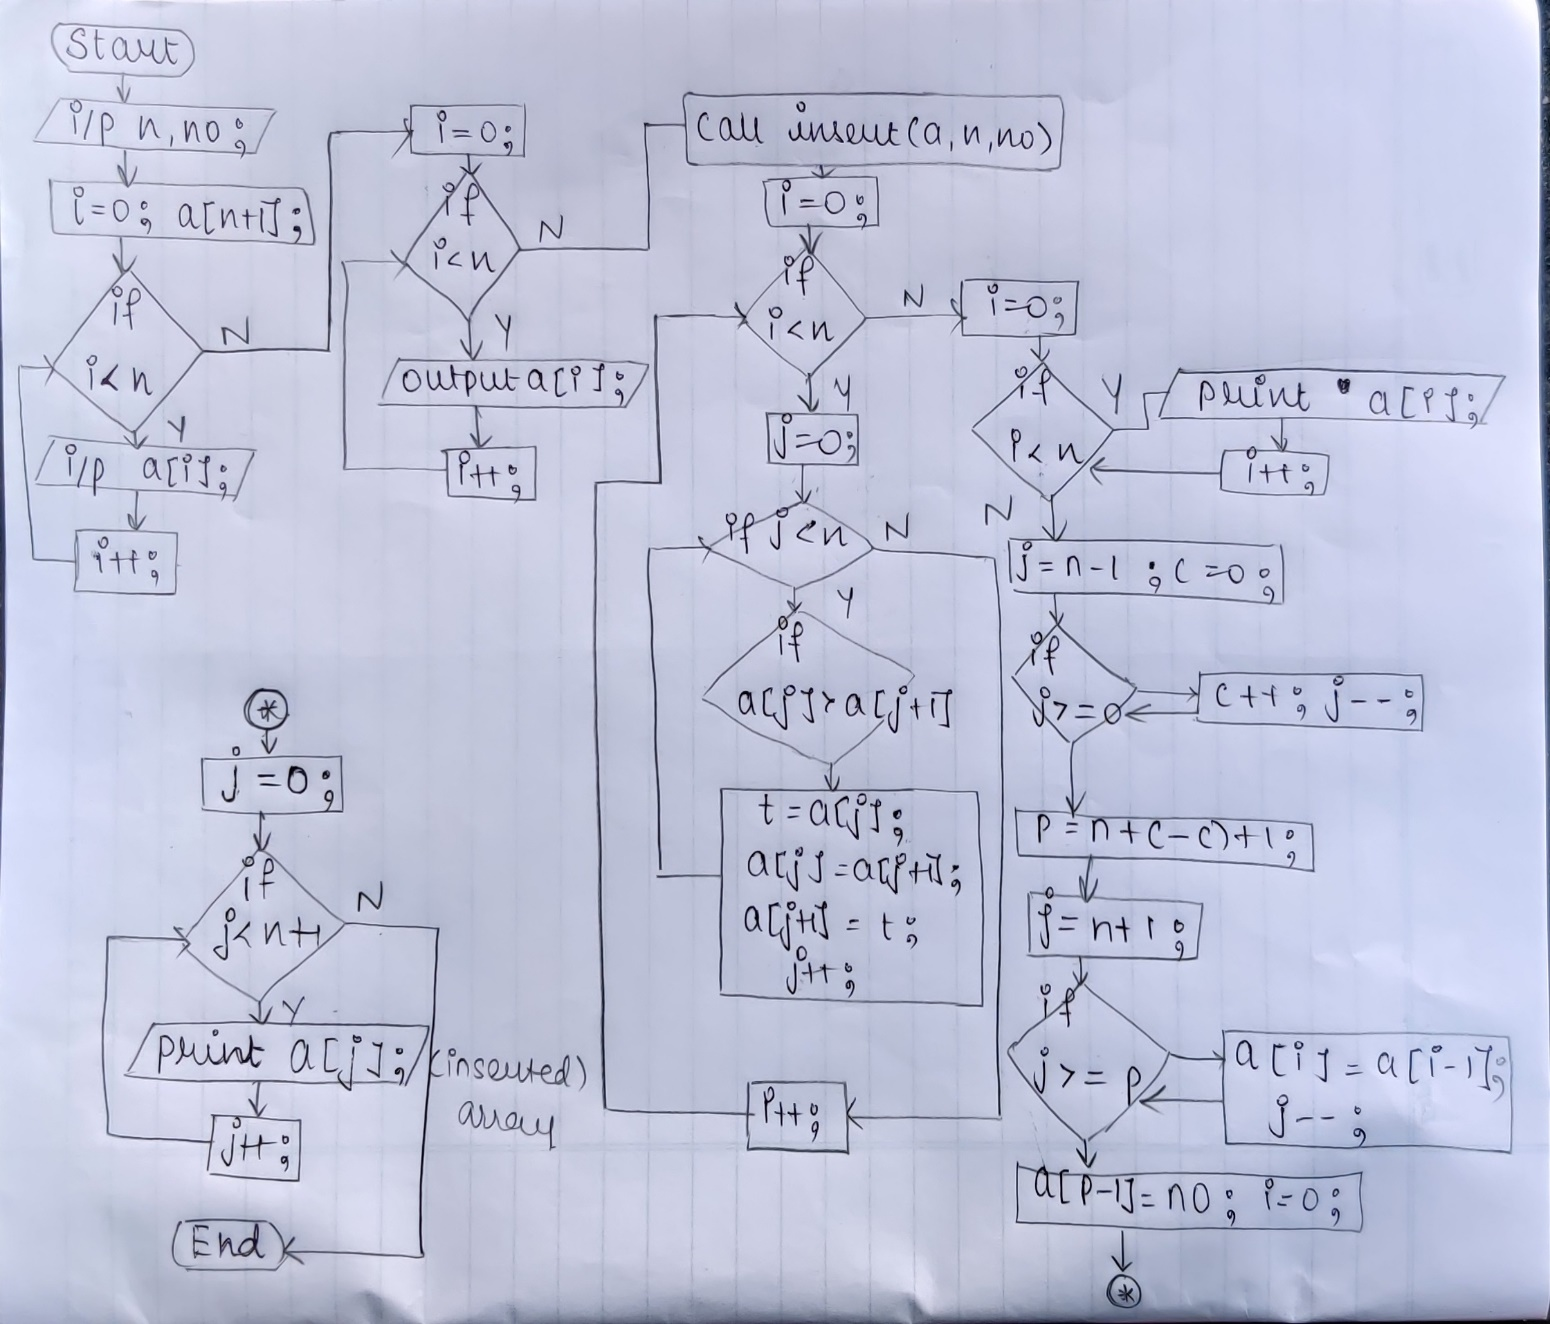 Start
i/p n,no;
i=0; a[n+1];
if
i<n
N
Y
i/p a[i];
i++;
i=0;
if
i<n
N
Y
output a[i];
i++;
Call insert(a,n,no)
i=0;
if
i<n
N
Y
j=0;
if j<n
N
Y
if
a[j]>a[j+1]
t=a[j];
a[j]=a[j+1];
a[j+1] = t;
j++;
i++;
i=0;
if
i<n
Y
print a[i];
i++;
N
j=n-1 ; c=0;
if
j>=0
c++; j--;
p=n+(-c)+1;
j=n+1;
if
j>=p
a[i]=a[i-1];
j--;
a[p-1]=no; i=0;
*
*
j=0;
if
j<n+1
N
Y
print a[j];
(inserted)
array
j++;
End